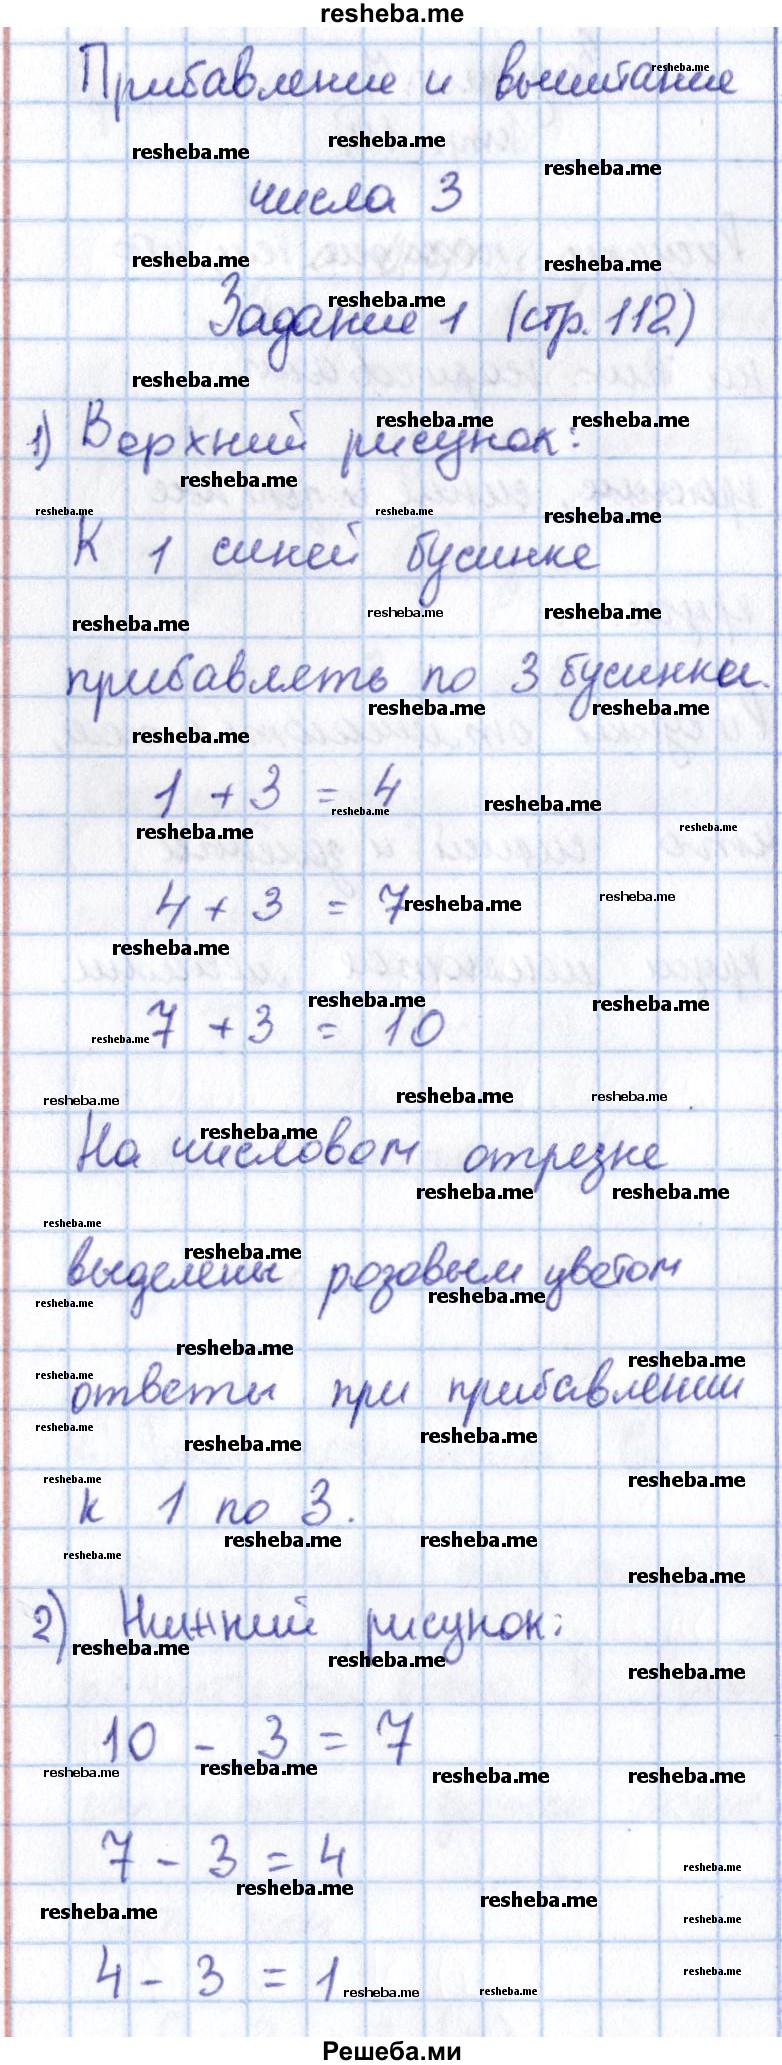 resheba.me
Прибавление и вычитание
числа 3
Задание 1 (стр. 112)
1) Верхний рисунок:
К 1 синей бусинке
прибавлять по 3 бусинки.
1 + 3 = 4
4 + 3 = 7
7 + 3 = 10
На числовом отрезке
выделены розовым цветом
ответы при прибавлении
к 1 по 3.
2) Нижний рисунок:
10 - 3 = 7
7 - 3 = 4
4 - 3 = 1
Решеба.ми